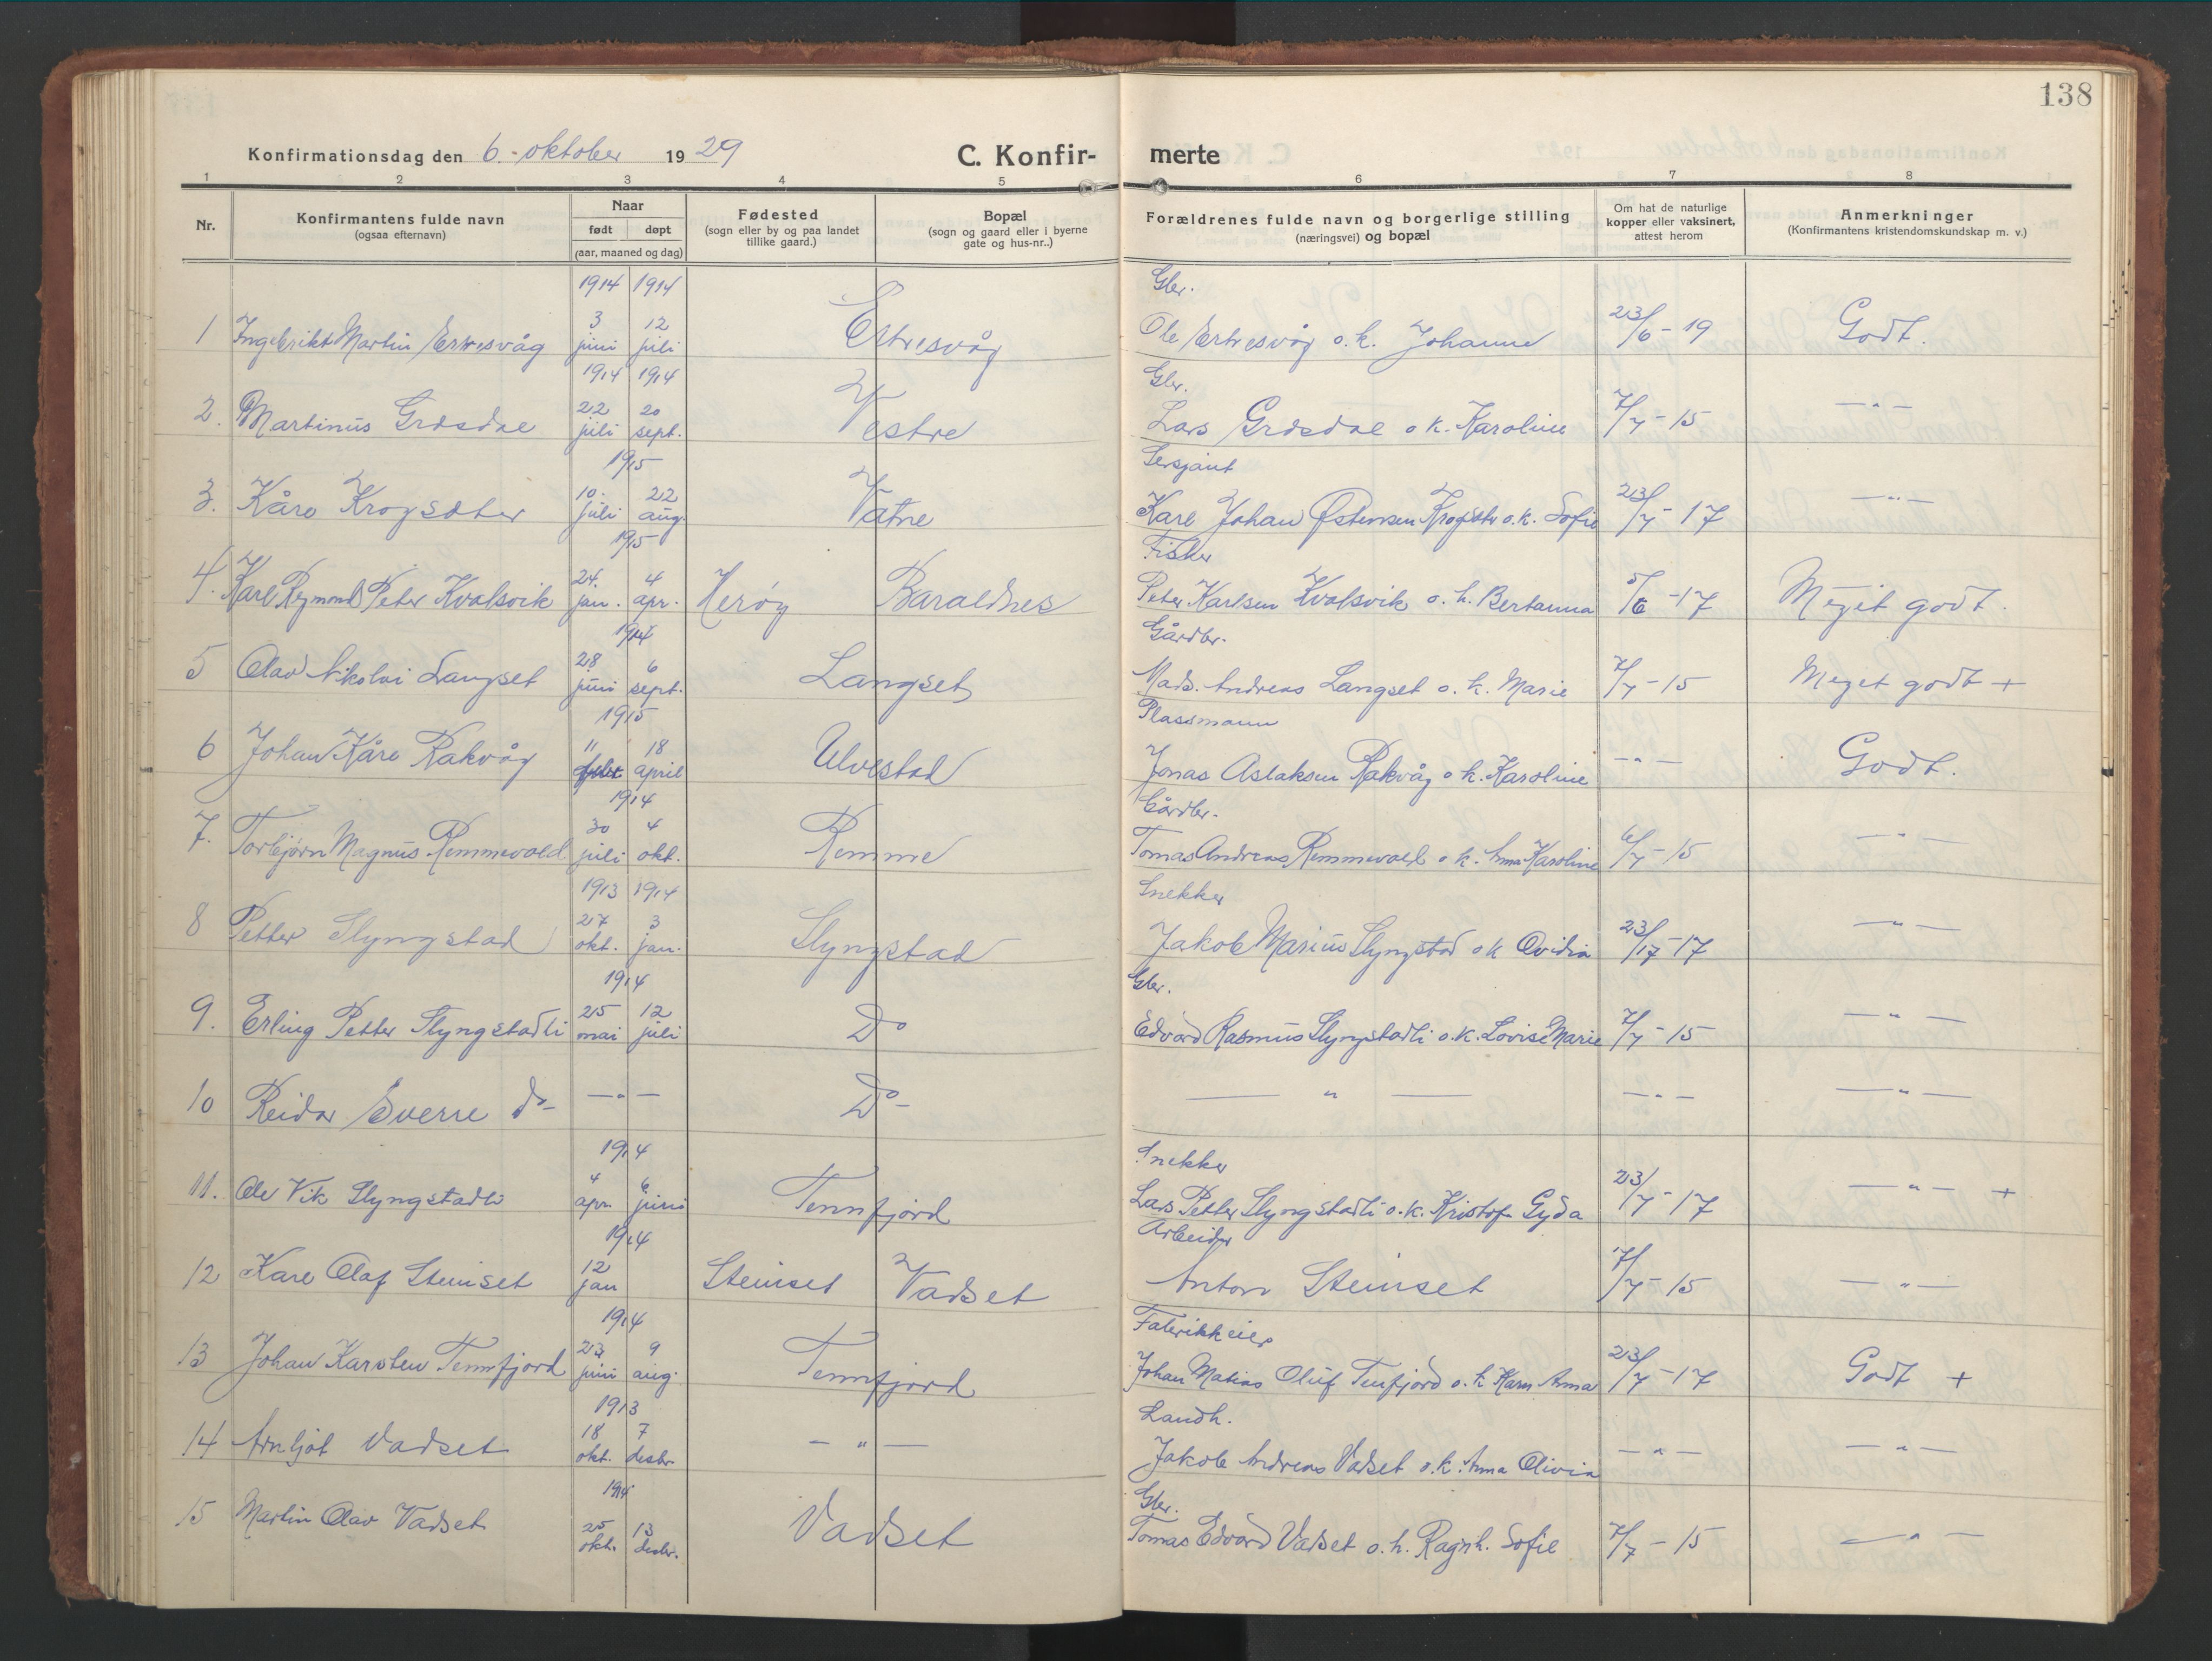 138
Konfirmationsdag den 6. oktober 1929 C. Konfirmerte
1 2 3 4 5 6 7 8
Nr. Konfirmantens fulde navn (ogsaa efternavn) Naar født døpt (aar, maaned og dag) Fødested (sogn eller by og paa landet tillike gaard.) Bopæl (sogn og gaard eller i byerne gate og hus-nr..) Forældrenes fulde navn og borgerlige stilling (næringsvei) og bopæl Om hat de naturlige kopper eller vaksinert, attest herom Anmerkninger (Konfirmantens kristendomskundskap m. v.)
1914 1914 Gbr.
1 Ingebrikt Martin Ertresvåg 3 juni 12 juli Ertresvåg Ole Ertresvåg o. k. Johanne 23/6 - 19 Godt.
1914 1914 Gbr.
2. Martinus Grøsdal 22 juli 20 sept. Vestre Lars Grøsdal o k. Karoline 7/7 - 15 — " —
1915 Sersjant
3. Kåre Krogsæter 10. juli 22 aug. Vatne Karl Johan Østensen o. k. Sofie 23/7 - 17 — " —
1915 Fisker
4. Karl Peter Kvalsvik 24. jan. 4 apr. Herøy Baraldnes Peter Karlsen Kvalsvik o. k. Bertanna 5/6 - 17 Meget godt.
1914 Gårdbr.
5 Olav Nikolai Langset 28 juni 6 sept. Langset Mads. Andreas Langset o. k. Marie 7/7 - 15 Meget godt +
1915 Plassmann
6 Johan Kåre Rakvåg 11 febr 18 april Ulvestad Jonas Aslaksen Rakvåg o k. Karoline — " — Godt.
1914 Gårdbr.
7. Torbjørn Magnus Remmevold 30 juli 4 okt. Remme Tomas Andreas Remmevold o k. Anna Karoline 6/7 - 15 — " —
1913 1914 Snekker
8 Petter Slyngstad 27 okt. 3 jan. Slyngstad Jakob Marius Slyngstad o k Ovidia 23/17 - 17 — " —
1914 Gbr.
9. Erling Petter Slyngstadli 25 mai 12 juli Do Edvard Rasmus Slyngstadli o. k. Lovise Marie 7/7 - 15 — " —
10 Reidar Sverre do- — " — Do- — " — — " — — " —
1914 Snekker
11. Ole Vik Slyngstadli 4 apr. 6 juni Tennfjord Lars Petter Slyngstadli o. k. Kristofa Gyda 23/7 - 17 — " — +
1914 Arbeider
12 Kare Olaf Steinset 12 jan Steinset Vadset Anton Steinset 7/7 - 15 — " —
1914 Fabrikkeier
13 Johan Karsten Tennfjord 23 juni 9 aug. Tennfjord Johan Matias Oluf Tenfjord o. k Karn Anna 23/7 - 17 Godt +
1913 Landh.
14 Arnljot Vadset 18 okt. 7 desbr. — " — Jakob Andreas Vadset o. k. Anna Olivia — " — — " —
1914 Gbr.
15 Martin Olav Vadset 25 okt. 13 desbr. Vadset Tomas Edvard Vadset o. k. Ragnh. Sofie 7/7 - 15 — " —